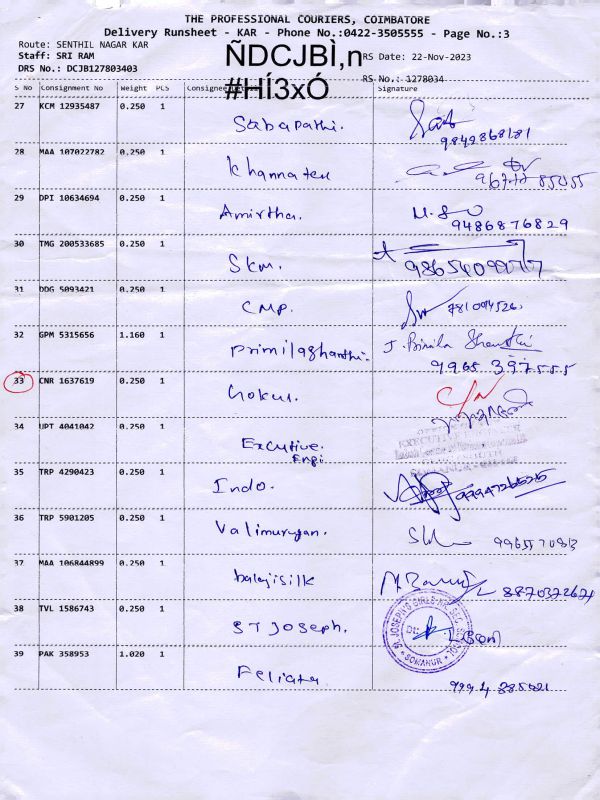 THE PROFESSIONAL COURIERS, COIMBATORE
Delivery Runsheet - KAR - Phone No.:0422-3505555 - Page No.:3
Route: SENTHIL NAGAR KAR
Staff: SRI RAM
DRS No.: DCJB127803403
ÑDCJBÌ,n
#HÍ3xÓ
RS Date: 22-Nov-2023
RS No.: 1278034
S No Consignment No Weight PCS Consignee Signature
27 KCM 12935487 0.250 1 Sabapathi. 9842868181
28 MAA 107022782 0.250 1
29 DPI 10634694 0.250 1 Amirtha. 9486876829
30 TMG 200533685 0.250 1 Skm.
31 DDG 5093421 0.250 1 CMP.
32 GPM 5315656 1.160 1 9965 397555
33 CNR 1637619 0.250 1 Gokul. C/N
34 UPT 4041042 0.250 1 Excutive. Engi.
35 TRP 4290423 0.250 1 Indo.
36 TRP 5901205 0.250 1 Valimurugan.
37 MAA 106844899 0.250 1 balajisilk
38 TVL 1586743 0.250 1 ST Joseph.
39 PAK 358953 1.020 1